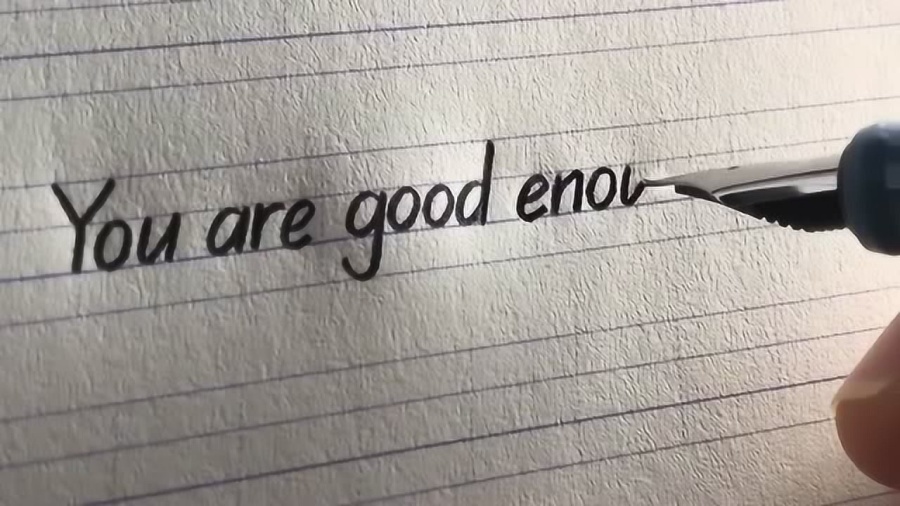 You are good enou